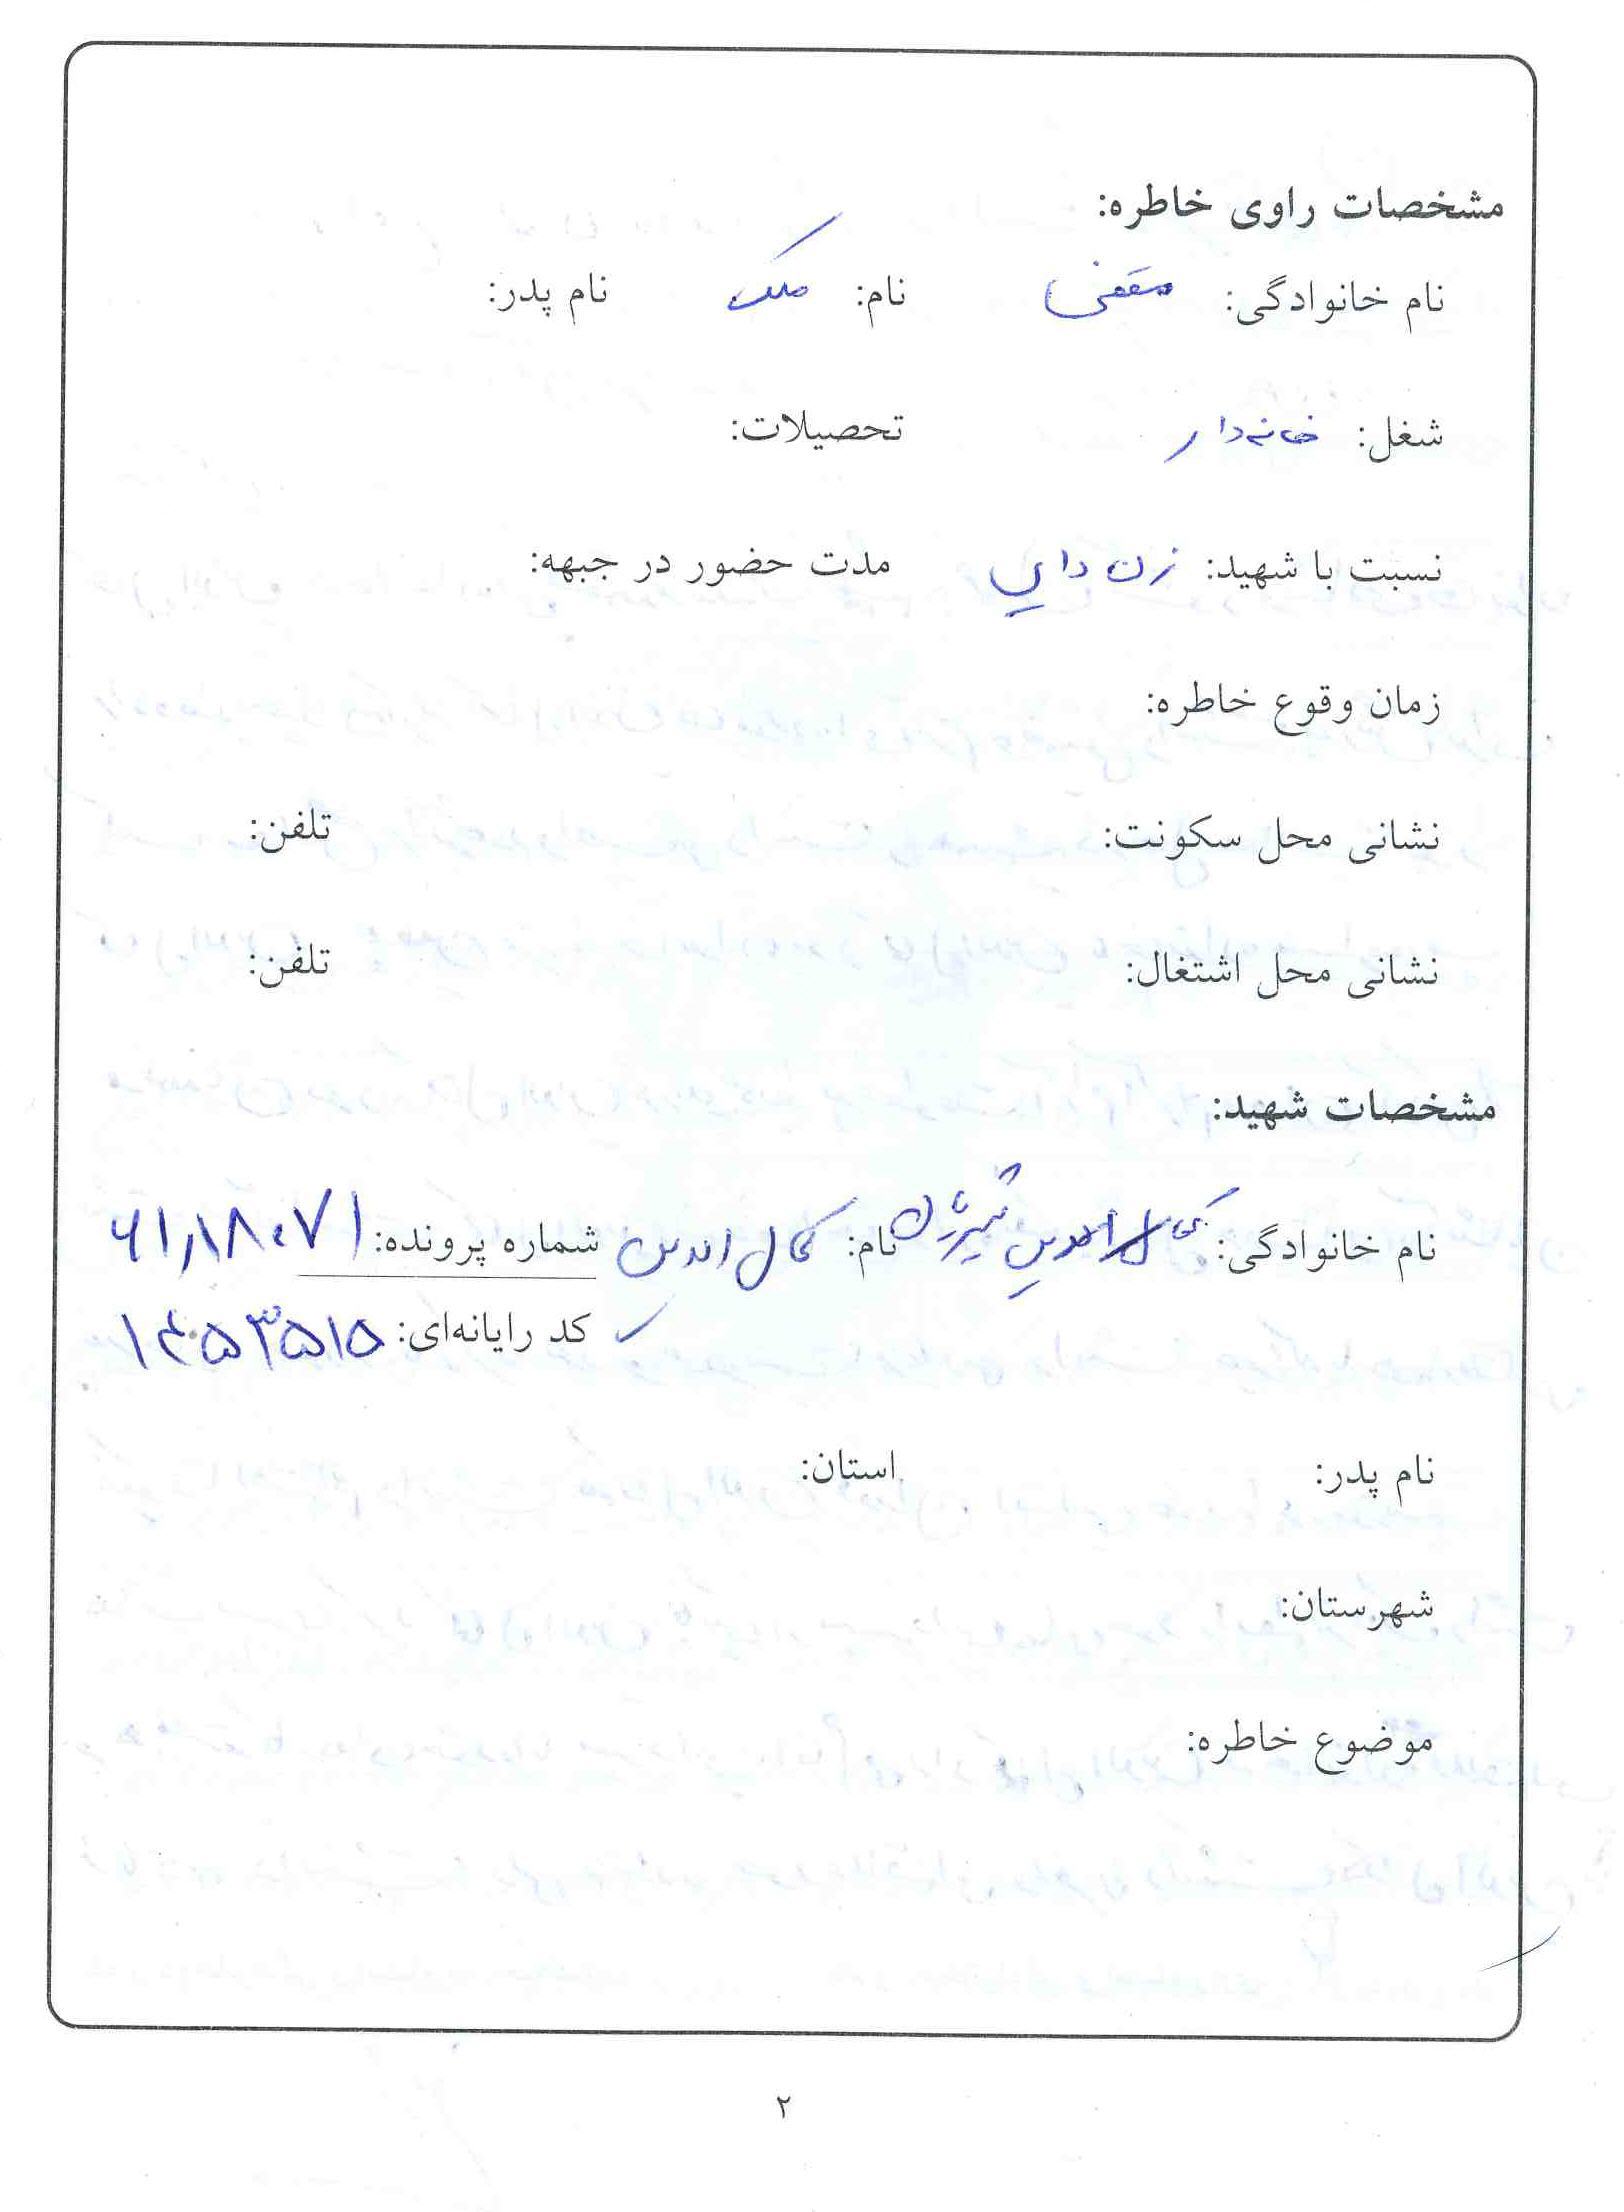 مشخصات راوی خاطره:
نام خانوادگی: سقفی نام: ملک نام پدر:
شغل: خانه‌دار تحصیلات:
نسبت با شهید: زن دایی مدت حضور در جبهه:
زمان وقوع خاطره:
نشانی محل سکونت: تلفن:
نشانی محل اشتغال: تلفن:
مشخصات شهید:
نام خانوادگی: نام: کمال الدین شماره پرونده:
کد رایانه‌ای: ۱۴۵۳۵۱۵
نام پدر: استان:
شهرستان:
موضوع خاطره:
۲